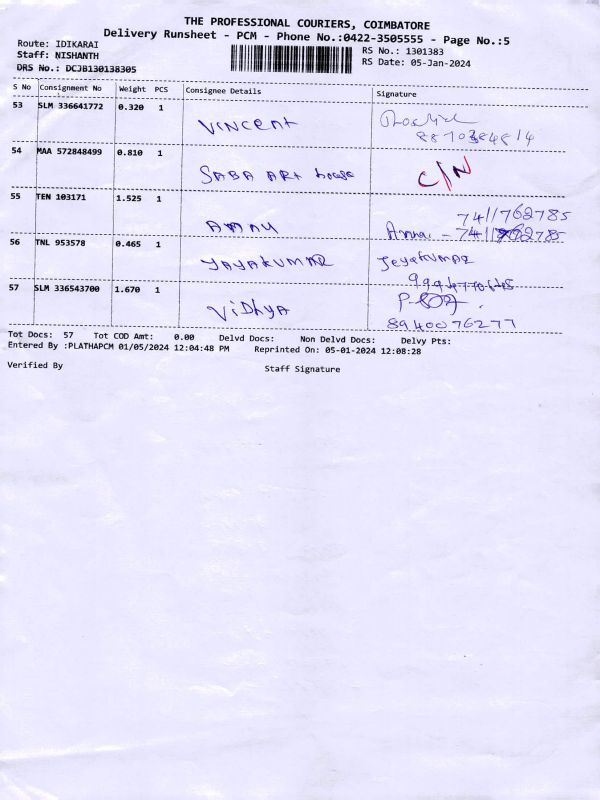 THE PROFESSIONAL COURIERS, COIMBATORE
Delivery Runsheet - PCM - Phone No.:0422-3505555 - Page No.:5
Route: IDIKARAI
Staff: NISHANTH
DRS No.: DCJB130138305
RS No.: 1301383
RS Date: 05-Jan-2024
S No Consignment No Weight PCS Consignee Details Signature
53 SLM 336641772 0.320 1 Vincent
54 MAA 572848499 0.810 1 SABA ART house C/N
55 TEN 103171 1.525 1 AMMU 7411762785
56 TNL 953578 0.465 1 JAYAKUMAR Jeyakumar
57 SLM 336543700 1.670 1 ViDhyA
8940076277
Tot Docs: 57 Tot COD Amt: 0.00 Delvd Docs: Non Delvd Docs: Delvy Pts:
Entered By :PLATHAPCM 01/05/2024 12:04:48 PM Reprinted On: 05-01-2024 12:08:28
Verified By Staff Signature